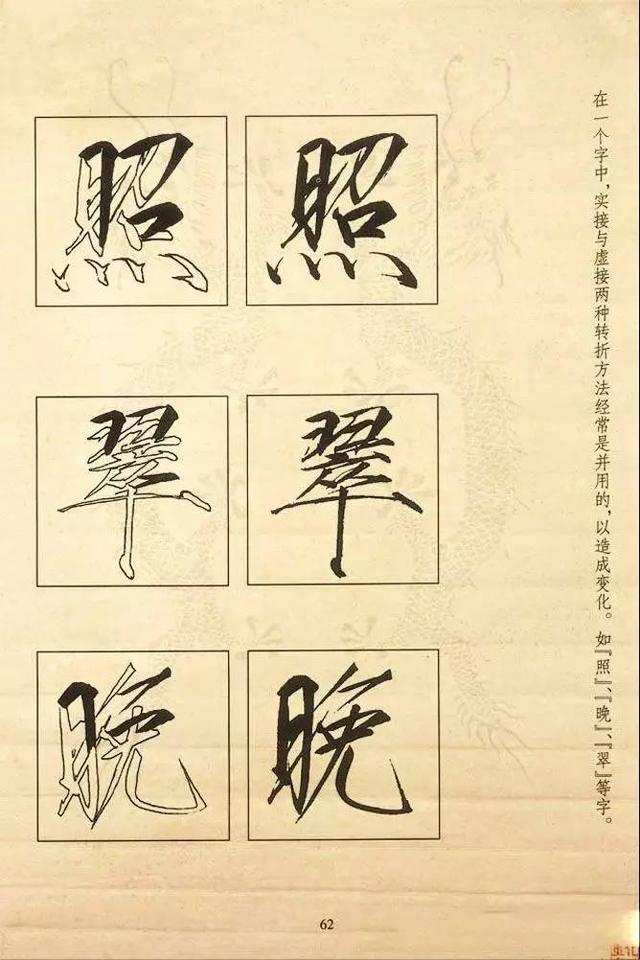 在一个字中，实接与虚接两种转折方法经常是并用的，以造成变化。如『照』、『晚』、『翠』等字。
照 照
翠 翠
晚 晚
62